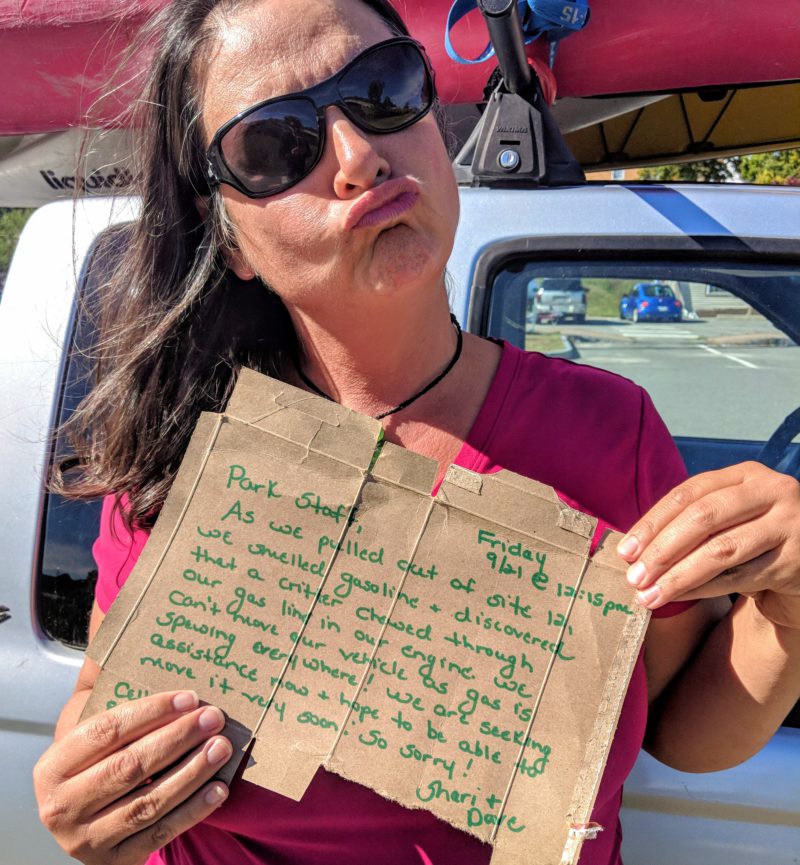 15
YAKIMA
liquid
Park Staff,
Friday
9/21 @ 12:15pm
As we pulled out of site 121
we smelled gasoline + discovered
that a critter chewed through
our gas line in our engine. We
can't move our vehicle as gas is
spewing everywhere! We are seeking
assistance now + hope to be able to
move it very soon. So sorry!
Cell
Sheri +
Dave